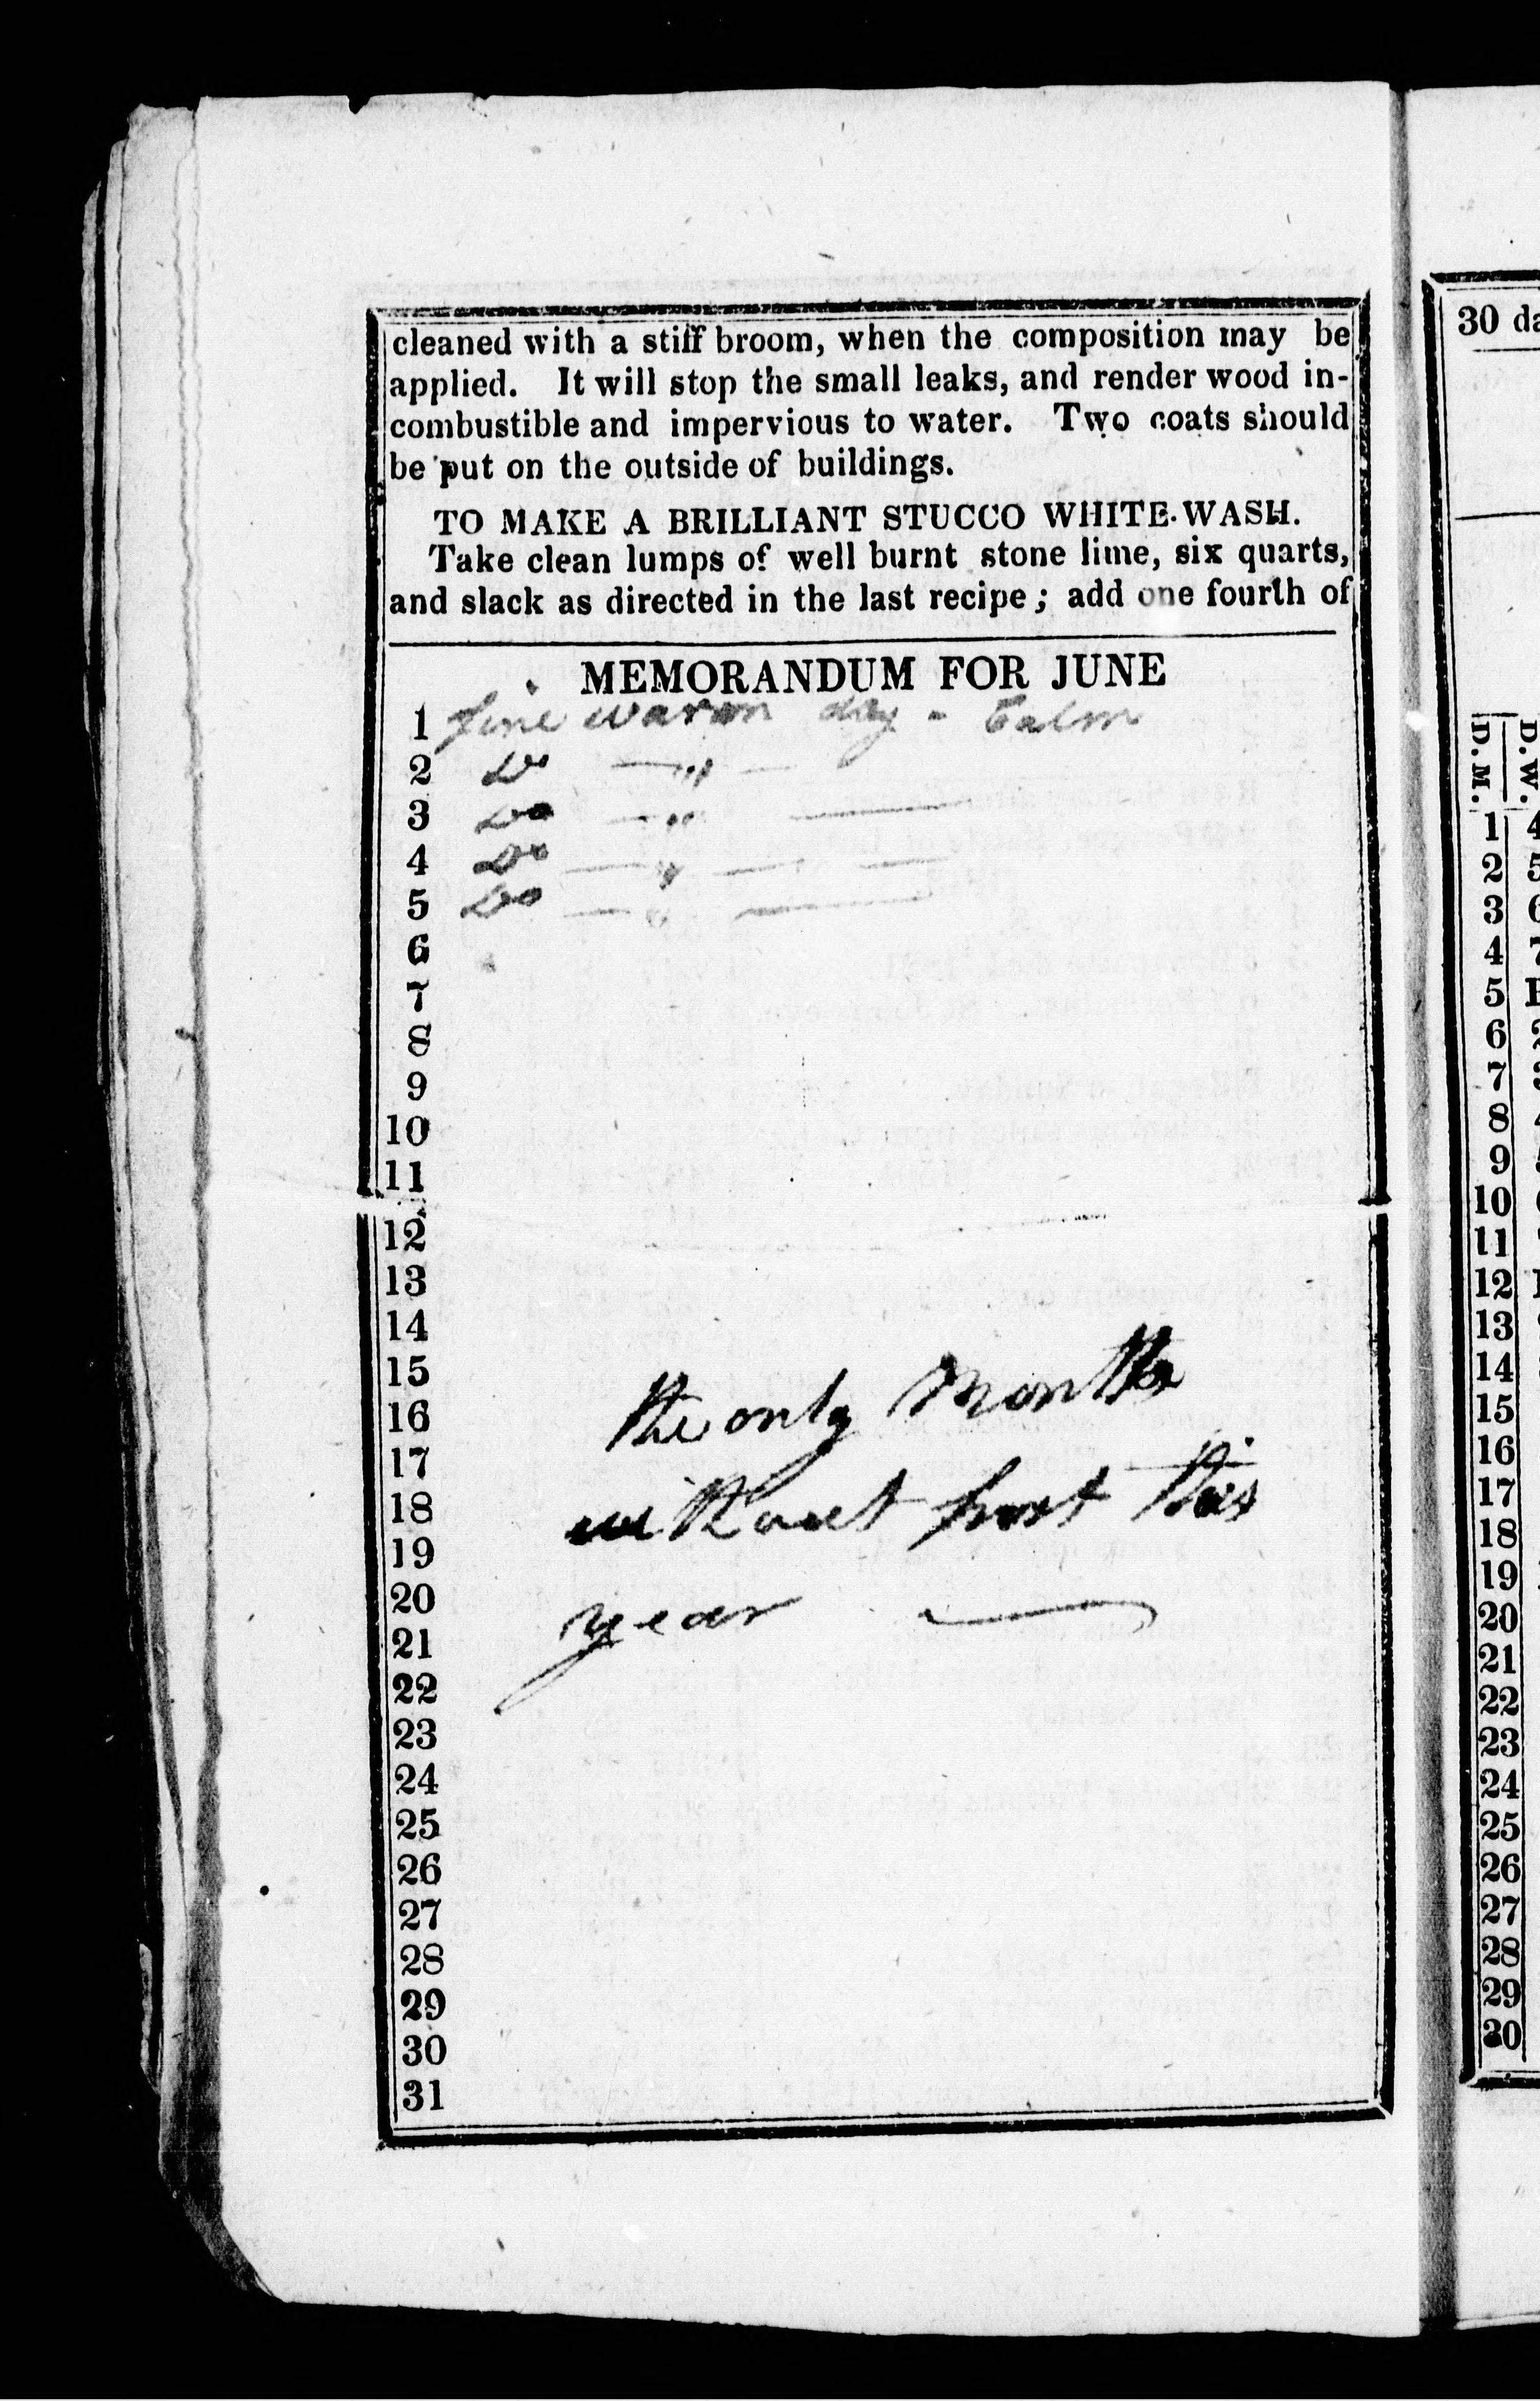 cleaned with a stiff broom, when the composition may be
applied. It will stop the small leaks, and render wood in-
combustible and impervious to water. Two coats should
be put on the outside of buildings.
TO MAKE A BRILLIANT STUCCO WHITE-WASH.
Take clean lumps of well burnt stone lime, six quarts,
and slack as directed in the last recipe; add one fourth of
MEMORANDUM FOR JUNE
1 fine warm day - Calm
2 Do — " —
3 Do — " —
4 Do — " — —
5 Do — " —
6
7
8
9
10
11
12
13
14
15
16
17
18
19
20
21
22
23
24
25
26
27
28
29
30
31
the only Month
without frost this
year —
30 da
D.M. D.W.
1 4
2 5
3 6
4 7
5
6 2
7 3
8 4
9 5
10
11
12
13
14
15
16
17
18
19
20
21
22
23
24
25
26
27
28
29
30